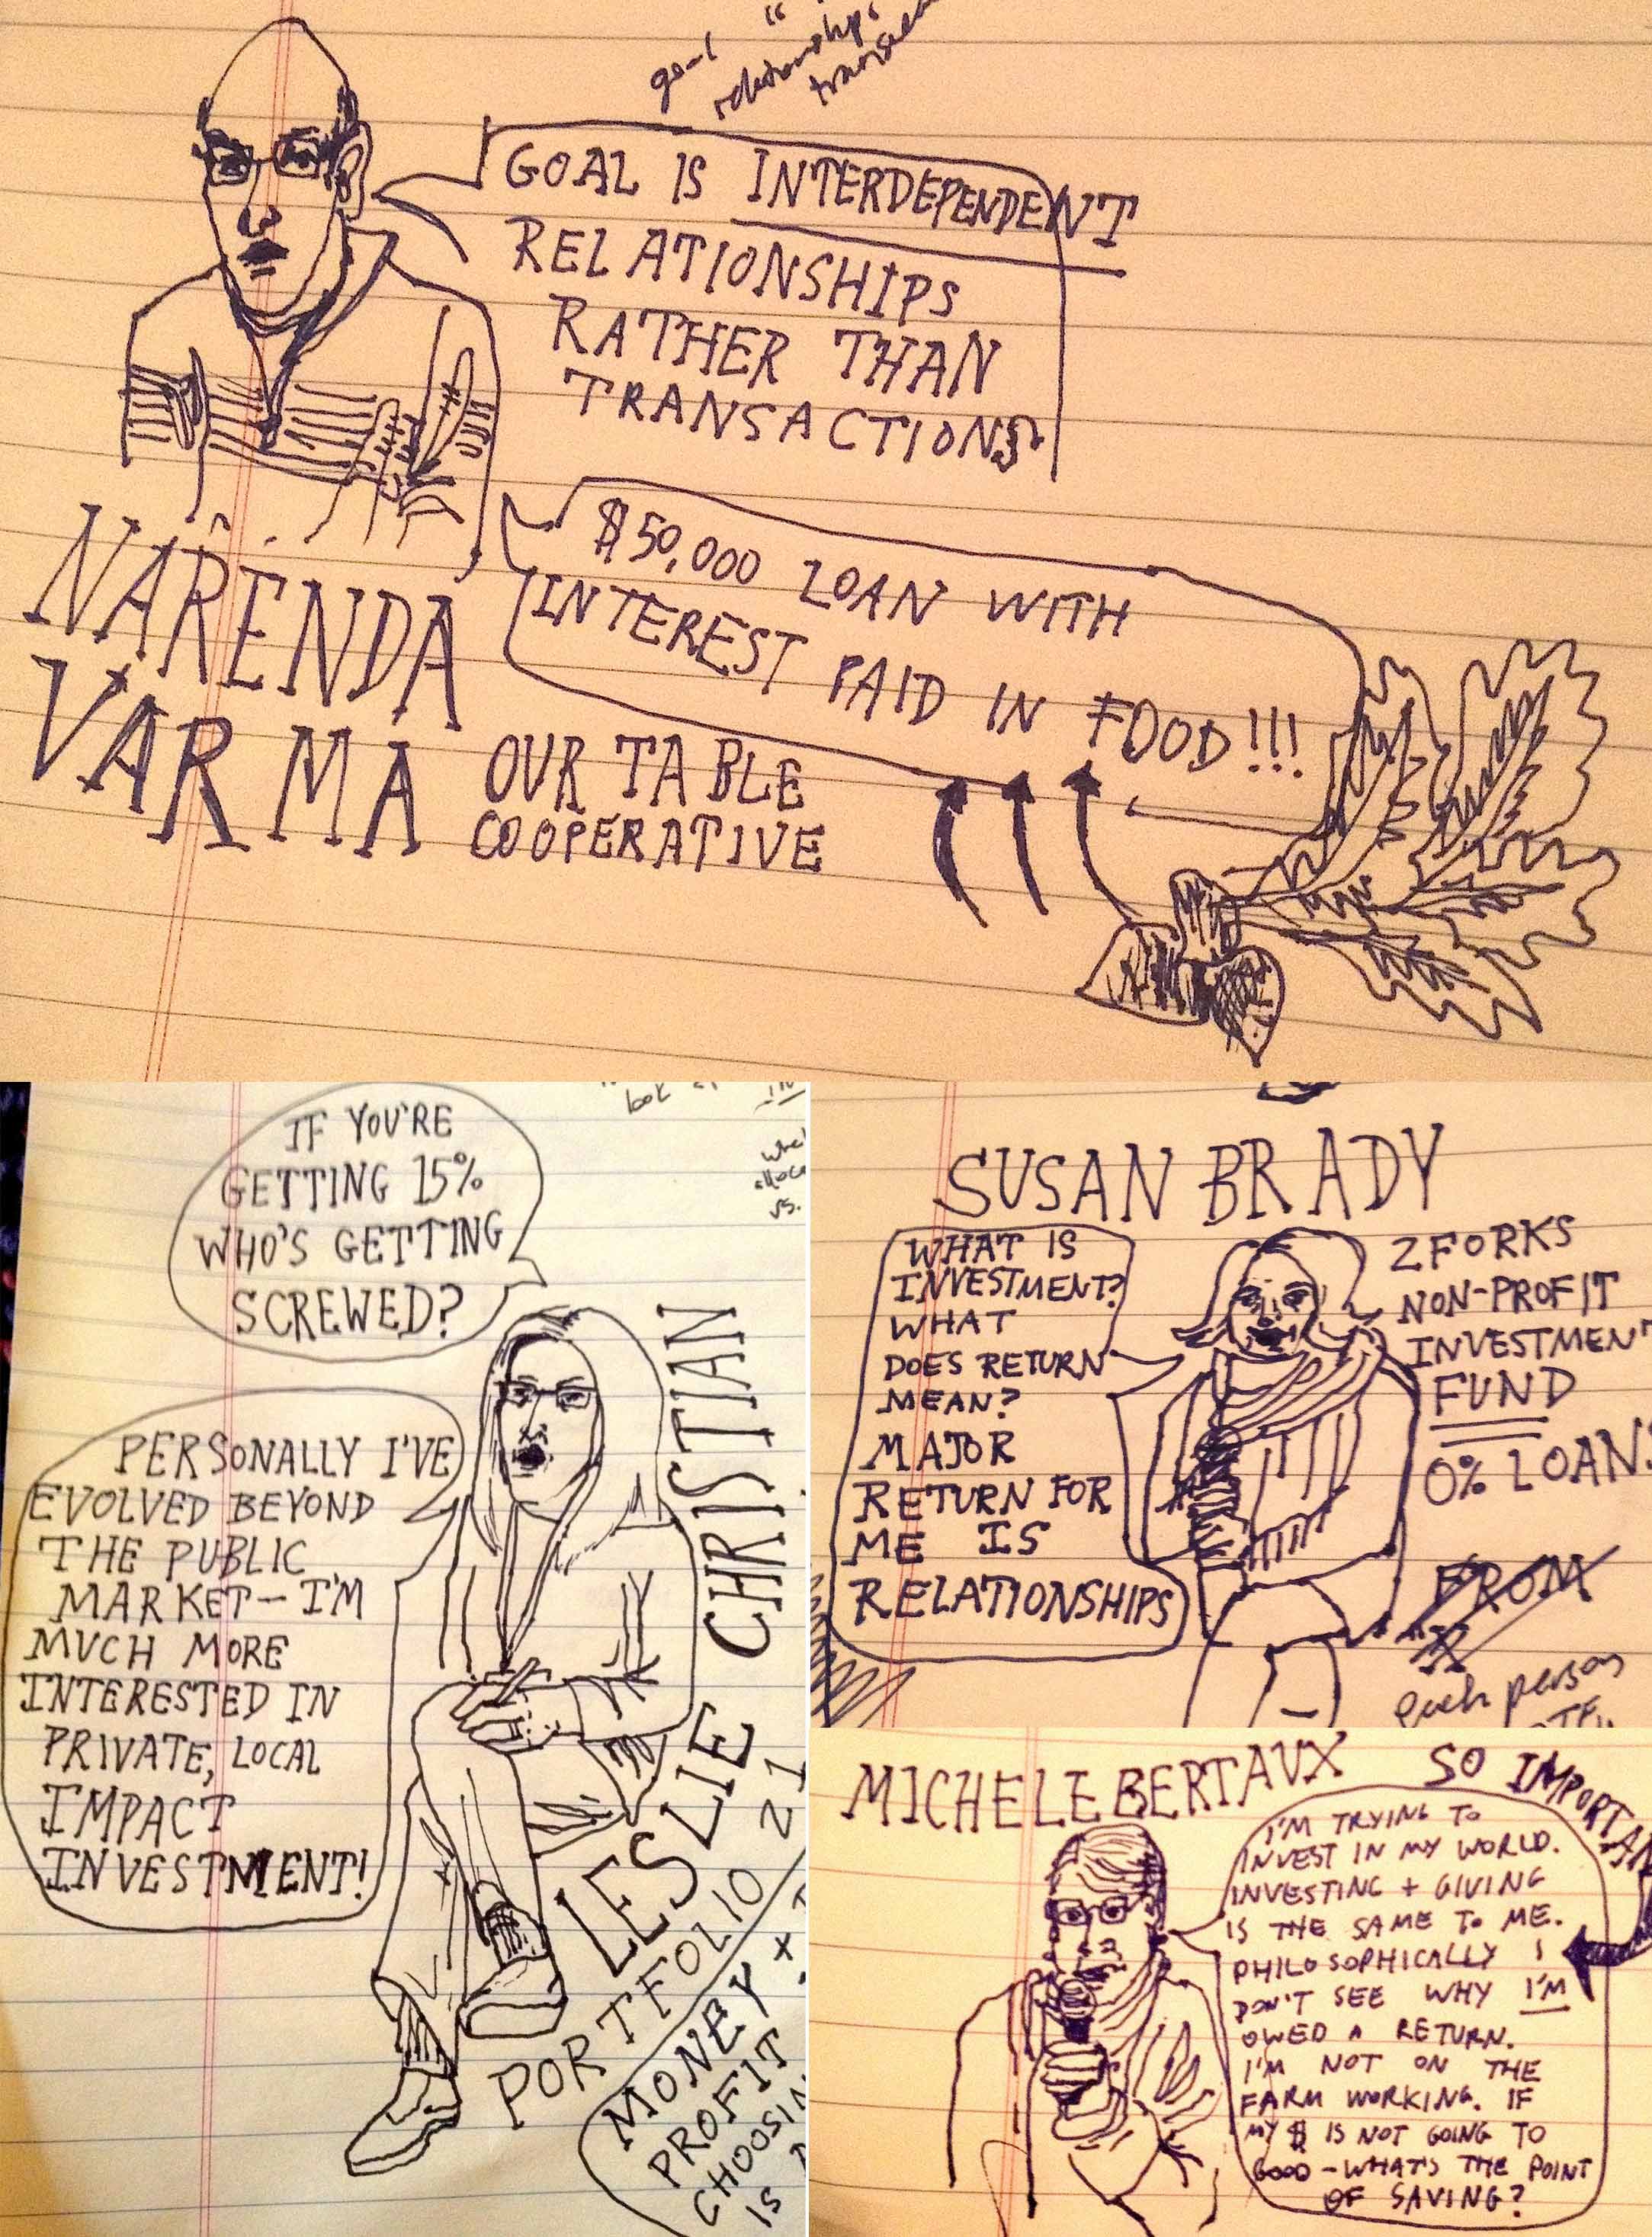 goal "
relationship"
GOAL IS INTERDEPENDENT
RELATIONSHIPS
RATHER THAN
TRANSACTIONS
$50,000 LOAN WITH
INTEREST PAID IN FOOD!!!
NARENDA
VARMA
OUR TABLE
COOPERATIVE
look
IF YOU'RE
GETTING 15%
WHO'S GETTING
SCREWED?
PERSONALLY I'VE
EVOLVED BEYOND
THE PUBLIC
MARKET - I'M
MUCH MORE
INTERESTED IN
PRIVATE, LOCAL
IMPACT
INVESTMENT!
LESLIE CHRISTIAN
PORTFOLIO 21
MONEY +
PROFIT
CHOOSIN
IS
vs.
SUSAN BRADY
WHAT IS
INVESTMENT?
WHAT
DOES RETURN
MEAN?
MAJOR
RETURN FOR
ME IS
RELATIONSHIPS
2 FORKS
NON-PROFIT
INVESTMENT
FUND
0% LOANS
FROM
each person
MICHELE BERTAUX
SO IMPORTAN
I'M TRYING TO
INVEST IN MY WORLD.
INVESTING + GIVING
IS THE SAME TO ME.
PHILOSOPHICALLY I
DON'T SEE WHY I'M
OWED A RETURN.
I'M NOT ON THE
FARM WORKING. IF
MY $ IS NOT GOING TO
GOOD - WHAT'S THE POINT
OF SAVING?